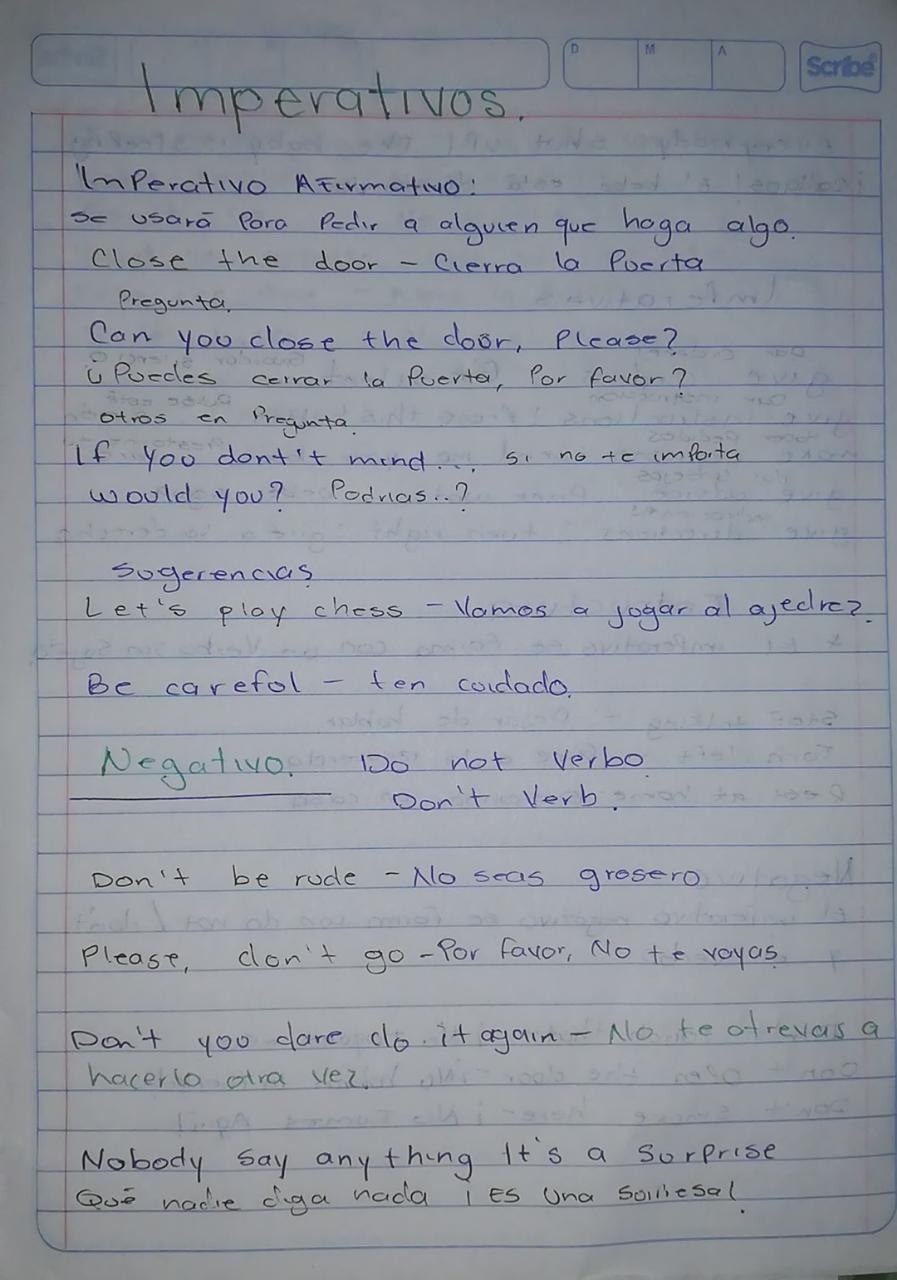 D M A
Scribe
Imperativos.
Imperativo Afirmativo:
se usará para pedir a alguien que haga algo.
Close the door – Cierra la Puerta
Pregunta.
Can you close the door, Please?
¿Puedes cerrar la Puerta, Por favor?
otros en Pregunta.
If you dont't mind... si no te importa
would you? Podrias..?
Sugerencias
Let's play chess – Vamos a jogar al ajedrez.
Be careful – ten cuidado.
Negativo. Do not Verbo
Don't Verb.
Don't be rude – No seas grosero
Please, don't go – Por favor, No te vayas
Don't you dare do it again – No te atrevas a
hacerlo otra vez.
Nobody say anything It's a surprise
Qué nadie diga nada ¡Es una sorpresa!